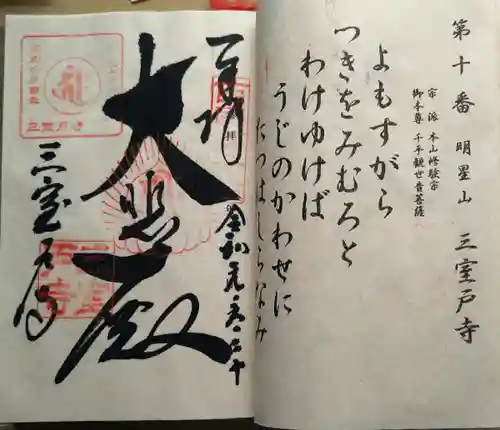 第十番 明星山 三室戸寺
宗派 本山修験宗
御本尊 千手観世音菩薩
よもすがら
つきをみむろと
わけゆけば
うじのかわせに
たつはしらなみ
奉拝
大悲殿
三室戸寺